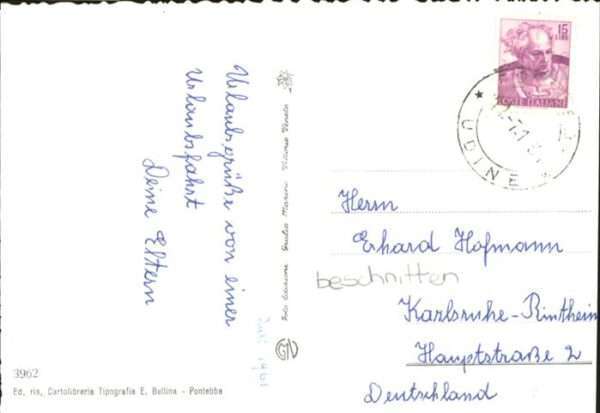 Urlaubsgrüße von einer
Urlaubsfahrt
Deine Eltern
15
LIRE
POSTE ITALIANE
UDINE
Herrn
Erhard Hofmann
beschnitten
Karlsruhe-Rintheim
Hauptstraße 2
Deutschland
3962
Ed. ris. Cartolibreria Tipografia E. Bellina - Pontebba